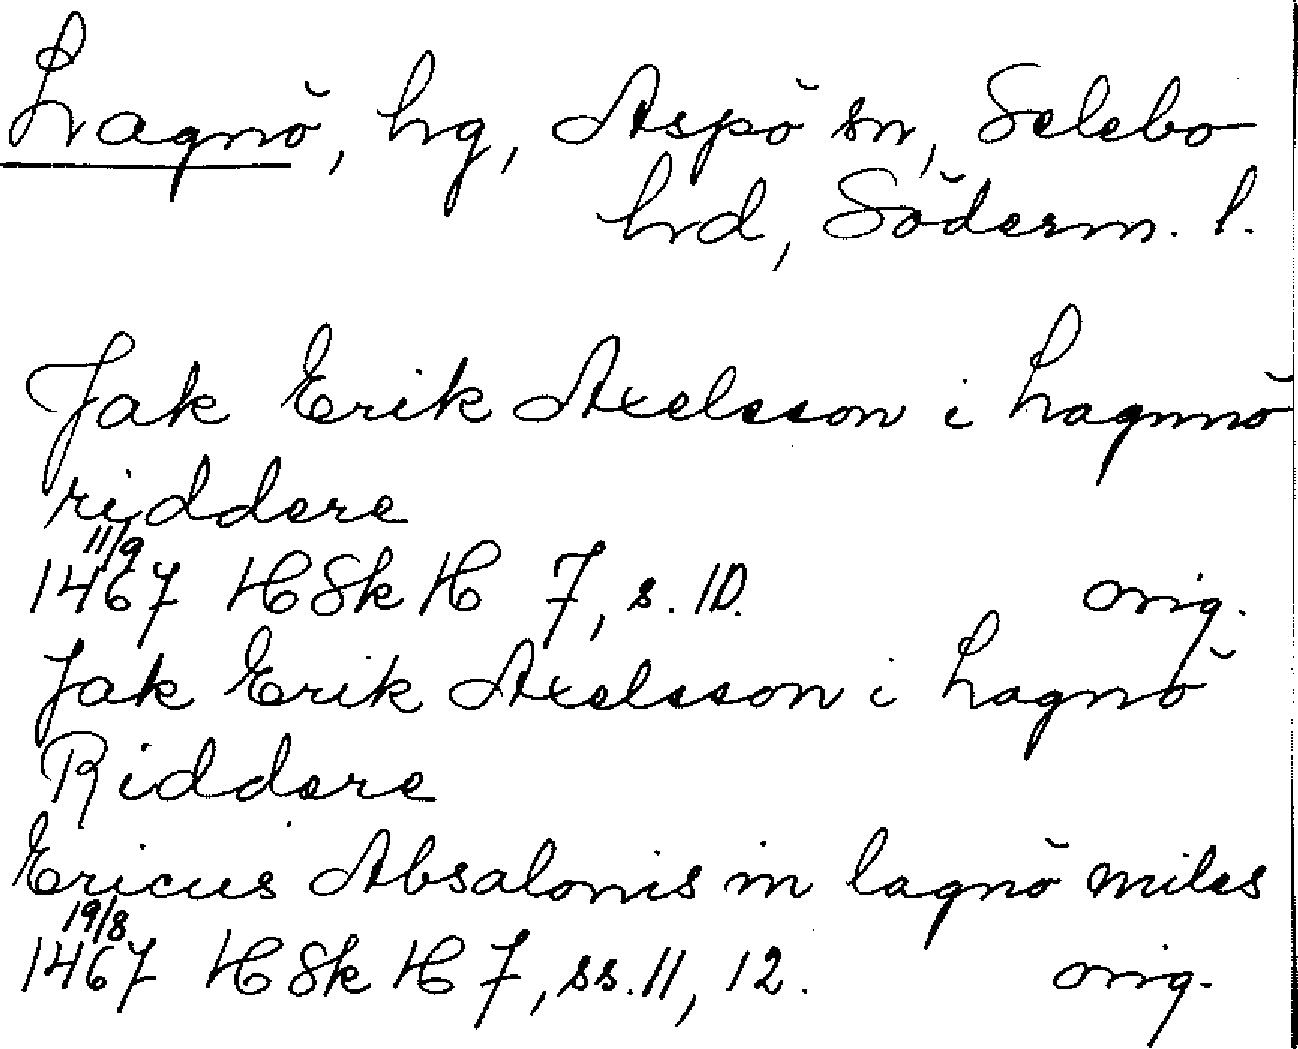 Lagnö, hg, Aspö sn, Selebo
hrd, Söderm. l.
Jak Erik Axelsson i Lagnnö
riddere
11/9
1467 HSkH 7, s. 10. orig.
Jak Erik Axelsson i Lagnö
Riddere
Ericus Absalonis in lagnö miles
19/8
1467 HSkH 7, ss. 11, 12. orig.